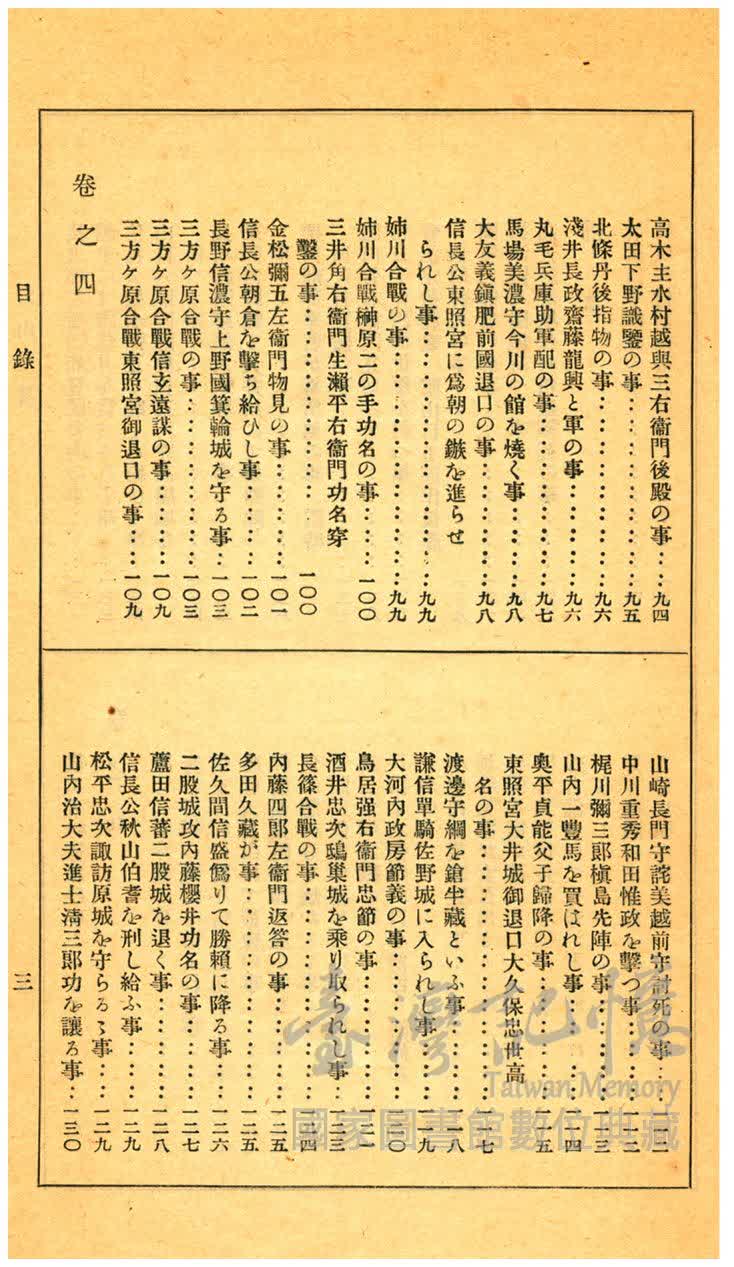 高木主水村越與三右衞門後殿の事……九四
太田下野識鑒の事……九五
北條丹後指物の事……九六
淺井長政齋藤龍興と軍の事……九六
丸毛兵庫助軍配の事……九七
馬場美濃守今川の館を燒く事……九八
大友義鎭肥前國退口の事……九八
信長公東照宮に爲朝の鏃を進らせ
られし事……九九
姉川合戰の事……九九
姉川合戰榊原二の手功名の事……一〇〇
三井角右衞門生瀨平右衞門功名穿
鑿の事……一〇〇
金松彌五左衞門物見の事……一〇一
信長公朝倉を擊ち給ひし事……一〇二
長野信濃守上野國箕輪城を守る事……一〇三
三方ヶ原合戰の事……一〇三
三方ヶ原合戰信玄遠謀の事……一〇九
三方ヶ原合戰東照宮御退口の事……一〇九
卷之四
山崎長門守詫美越前守討死の事……一一二
中川重秀和田惟政を擊つ事……一一二
梶川彌三郞槇島先陣の事……一一三
山內一豐馬を買はれし事……一一四
奧平貞能父子歸降の事……一一五
東照宮大井城御退口大久保忠世高
名の事……一一七
渡邊守綱を鎗半藏といふ事……一一八
謙信單騎佐野城に入られし事……一一九
大河內政房節義の事……一二〇
鳥居强右衞門忠節の事……一二一
酒井忠次鳶巢城を乘り取られし事……一二三
長篠合戰の事……一二四
內藤四郞左衞門返答の事……一二五
多田久藏が事……一二五
佐久間信盛僞りて勝賴に降る事……一二六
二股城攻內藤櫻井功名の事……一二七
蘆田信蕃二股城を退く事……一二八
信長公秋山伯耆を刑し給ふ事……一二九
松平忠次諏訪原城を守らるゝ事……一二九
山內治大夫進士淸三郞功を讓る事……一三〇
目錄
三
臺灣記憶
Taiwan Memory
國家圖書館數位典藏